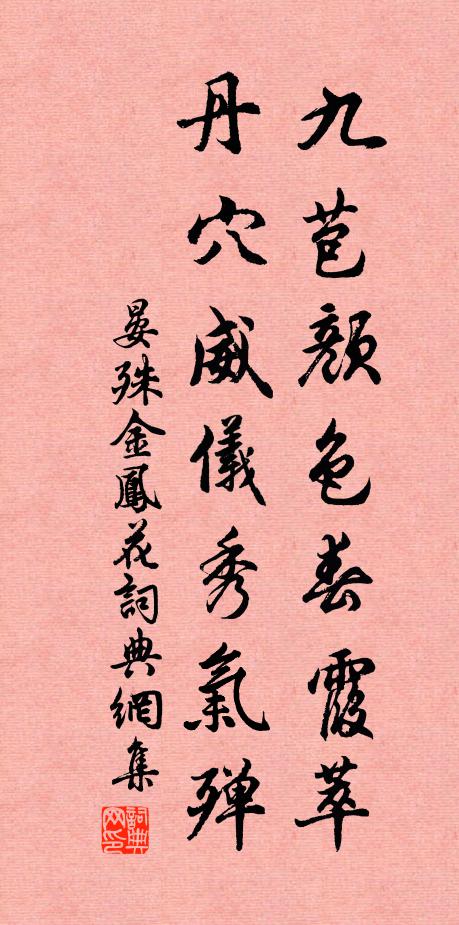 九苞顏色春霞萃
丹穴威儀秀氣殫
晏殊金鳳花詞典網集
詞典网印